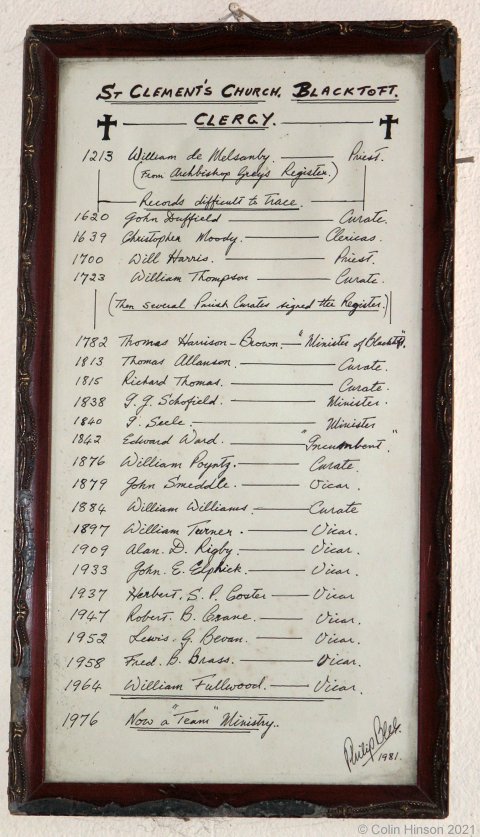 St Clement's Church, Blacktoft.
Clergy.
1213 William de Melsanby. Priest.
(From Archbishop Grey's Register.)
Records difficult to Trace.
1620 John Duffield Curate.
1639 Christopher Moody. Clericas.
1700 Will Harris. Priest.
1723 William Thompson Curate.
(Then several Parish Curates signed the Register.)
1782 Thomas Harrison-Brown. "Minister of Blacktoft".
1813 Thomas Allanson. Curate.
1815 Richard Thomas. Curate.
1838 G. G. Schofield. Minister.
1840 Seele. Minister
1842 Edward Ward. "Incumbent."
1876 William Poyntz. Curate.
1879 John Smeddle. Vicar.
1884 William Williams. Curate
1897 William Turner. Vicar.
1909 Alan. D. Rigby. Vicar.
1933 John. E. Elphick. Vicar.
1937 Herbert. S. P. Coster Vicar.
1947 Robert. B. Crane. Vicar.
1952 Lewis. G. Bevan. Vicar.
1958 Fred. B. Brass. Vicar.
1964 William Fullwood. Vicar.
1976 Now a "Team" Ministry..
Philip
1981.
© Colin Hinson 2021